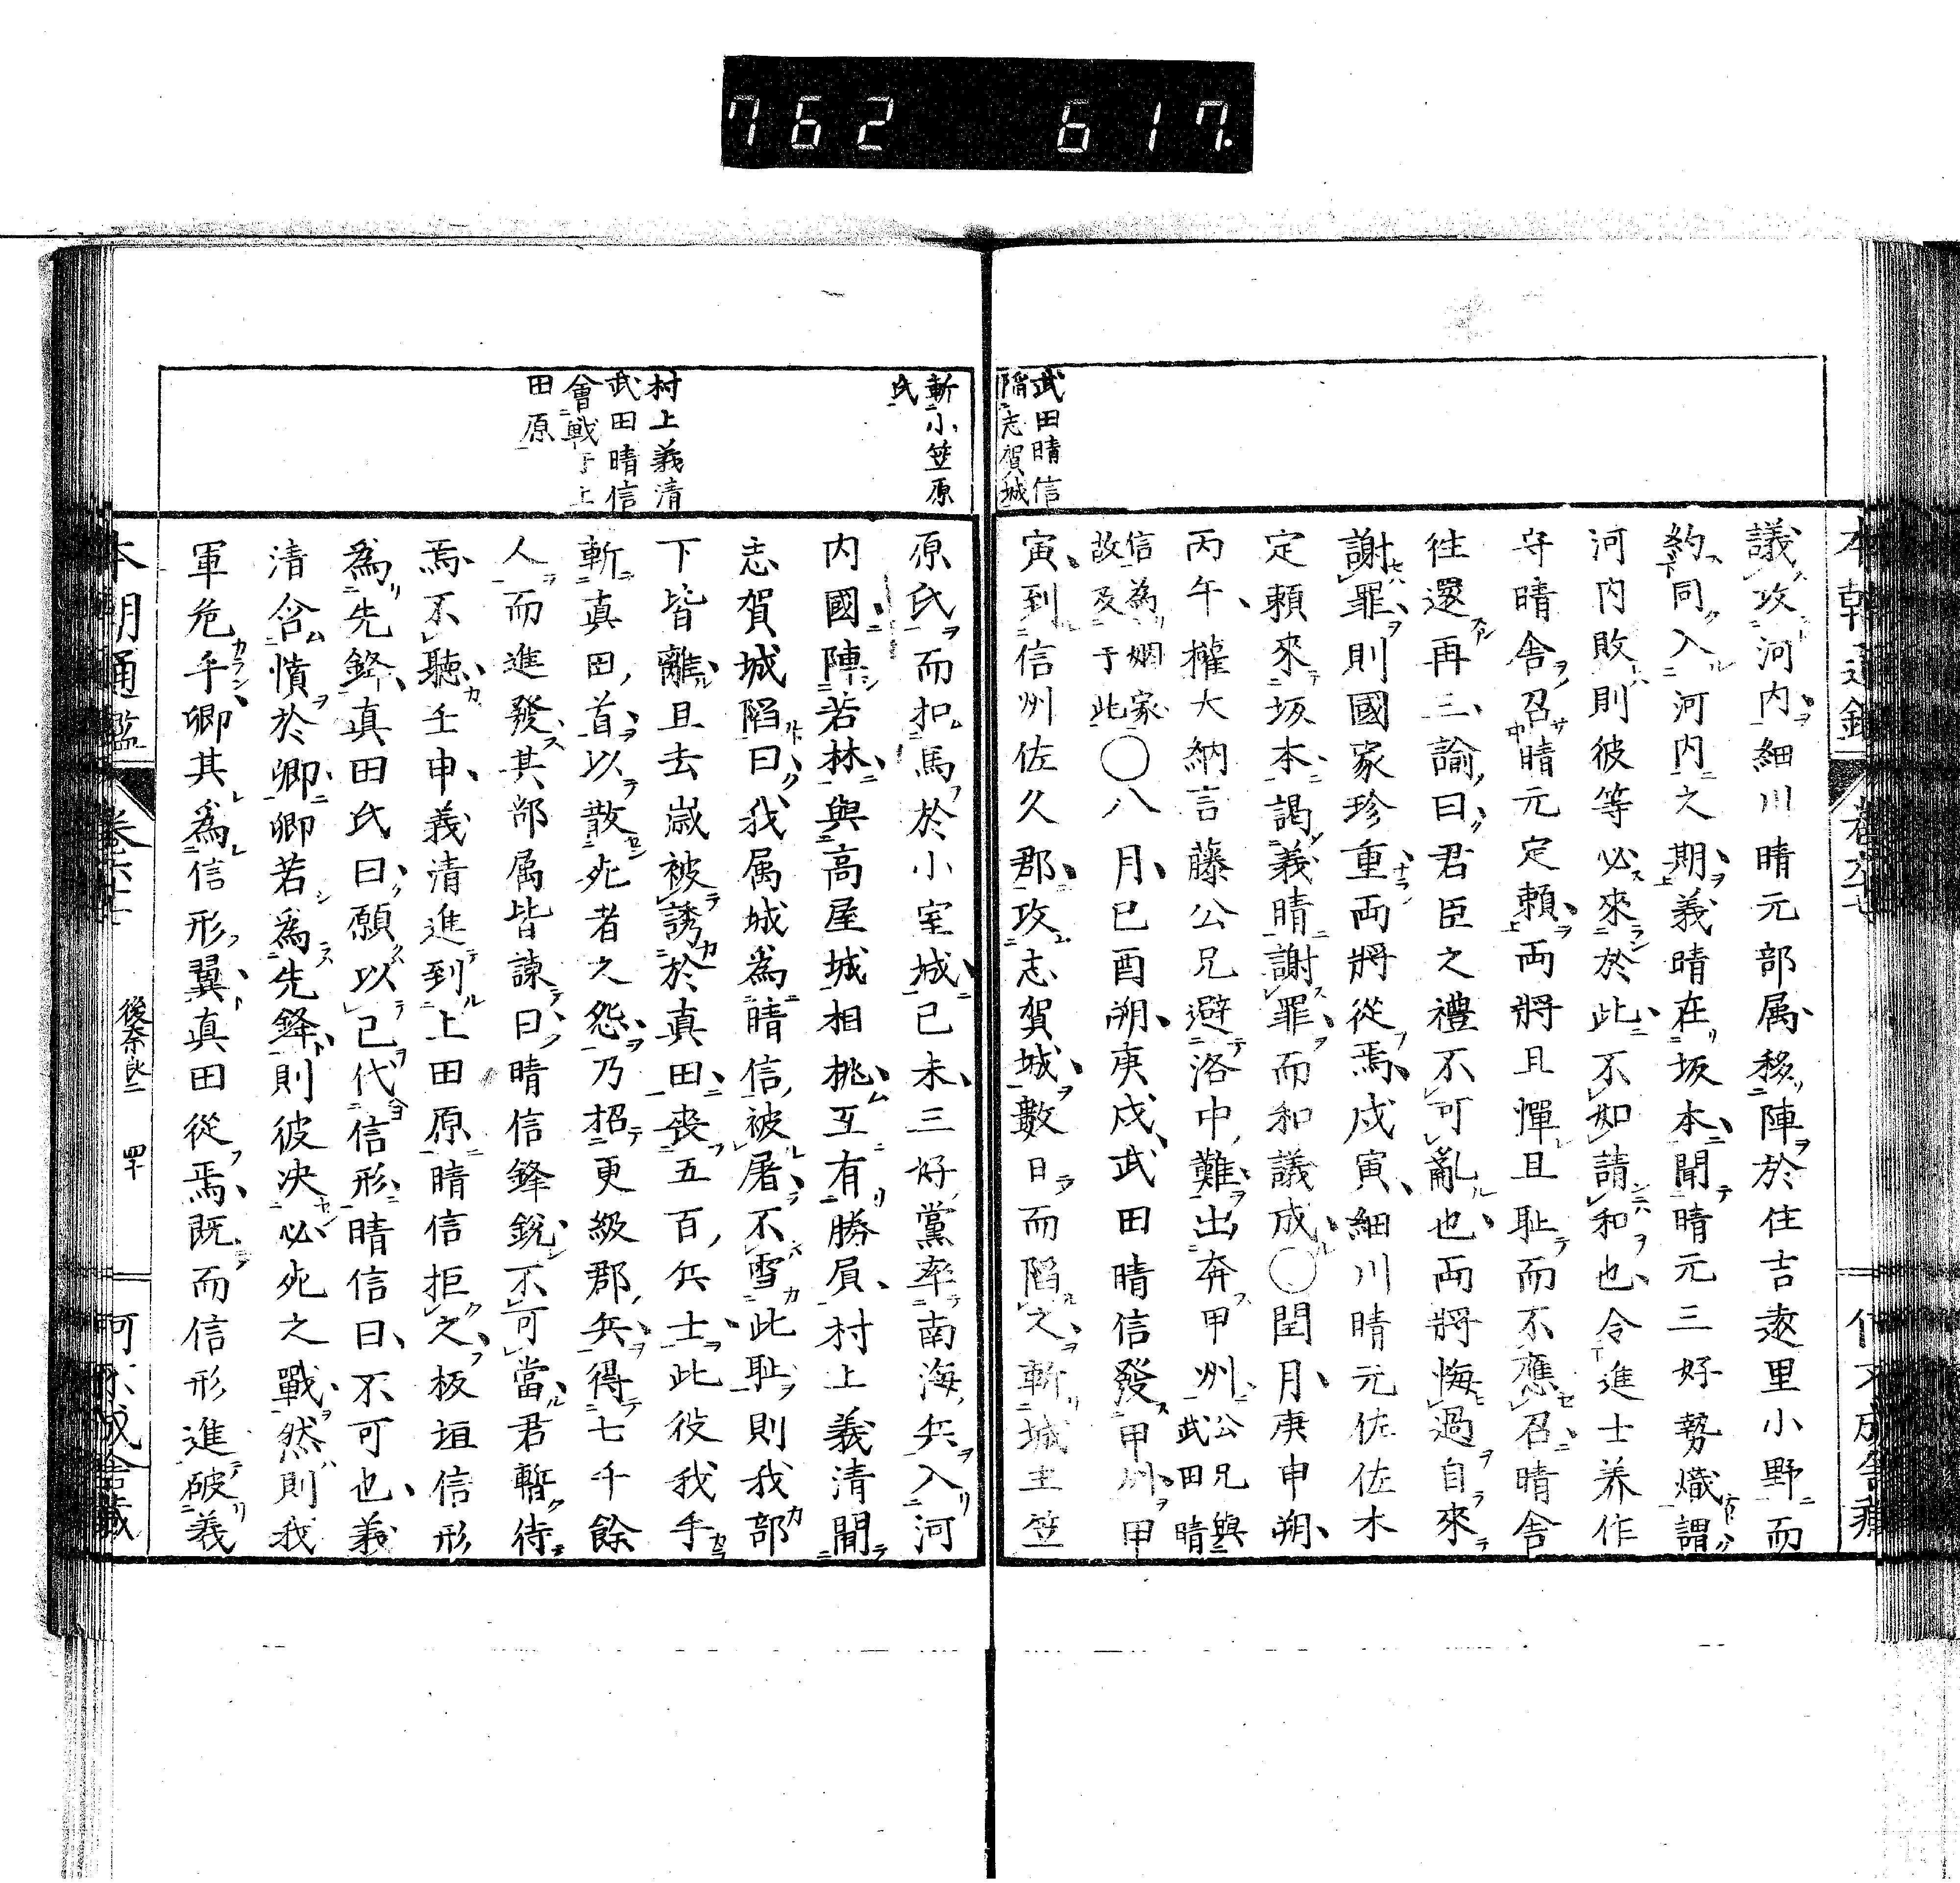 762 617.
武田晴信
陷志賀城
議攻河内細川晴元部属移陣於住吉遠里小野而
約同入河内之期義晴在坂本聞晴元三好勢熾謂
河内敗則彼等必來於此不如請和也令進士养作
守晴舎召晴元定頼両将且憚且耻而不應召晴舎
往還再三諭曰君臣之禮不可亂也両将悔過自來
謝罪則國家珍重両将從焉戊寅細川晴元佐佐木
定頼來坂本謁義晴謝罪而和議成○閏月庚申朔
丙午權大納言藤公兄避洛中難出奔甲州公兄與武田晴
信為姻家故及于此○八月已酉朔庚戌武田晴信發甲州甲
寅到信州佐久郡攻志賀城數日而陷之斬城主笠
斬小笠原
氏
村上義清
武田晴信
會戰于上
田原
原氏而扣馬於小室城已未三好黨率南海兵入河
内國陣若林與高屋城相挑互有勝負村上義清聞
志賀城陷曰我属城為晴信被屠不雪此耻則我部
下皆離且去歳被誘於真田喪五百兵士此役我手
斬真田首以散死者之怨乃招更級郡兵得七千餘
人而進發其部属皆諫曰晴信鋒鋭不可當君暫待
焉不聽壬申義清進到上田原晴信拒之板垣信形
為先鋒真田氏曰願以已代信形晴信曰不可也義
清含憤於卿卿若為先鋒則彼决必死之戰然則我
軍危乎卿其為信形翼真田從焉既而信形進破義
本朝通鑑 卷六十七 後奈良二 四十